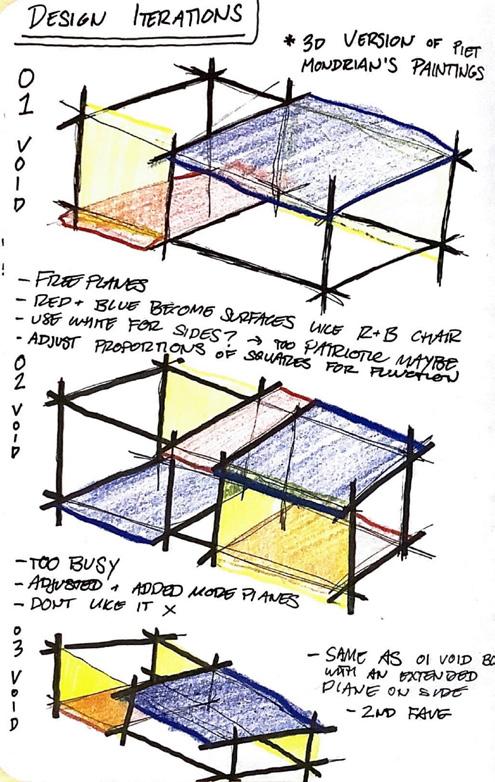 DESIGN ITERATIONS
* 3D VERSION OF PIET
MONDRIAN'S PAINTINGS
01 VOID
- FREE PLANES
- RED + BLUE BECOME SURFACES LIKE R+B CHAIR
- USE WHITE FOR SIDES? → TOO PATRIOTIC MAYBE
- ADJUST PROPORTIONS OF SQUARES FOR FUNCTION
02 VOID
- TOO BUSY
- ADJUSTED + ADDED MORE PLANES
- DONT LIKE IT X
03 VOID
- SAME AS 01 VOID
WITH AN EXTENDED
PLANE ON SIDE
- 2ND FAVE